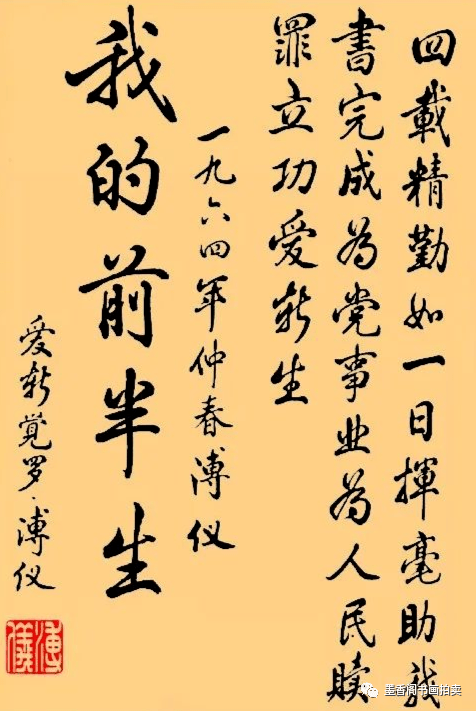 四載精勤如一日揮毫助我
書完成为党事业为人民赎
罪立功爱新生
一九六四年仲春溥仪
我的前半生
爱新觉罗·溥仪
溥儀
墨香阁书画拍卖